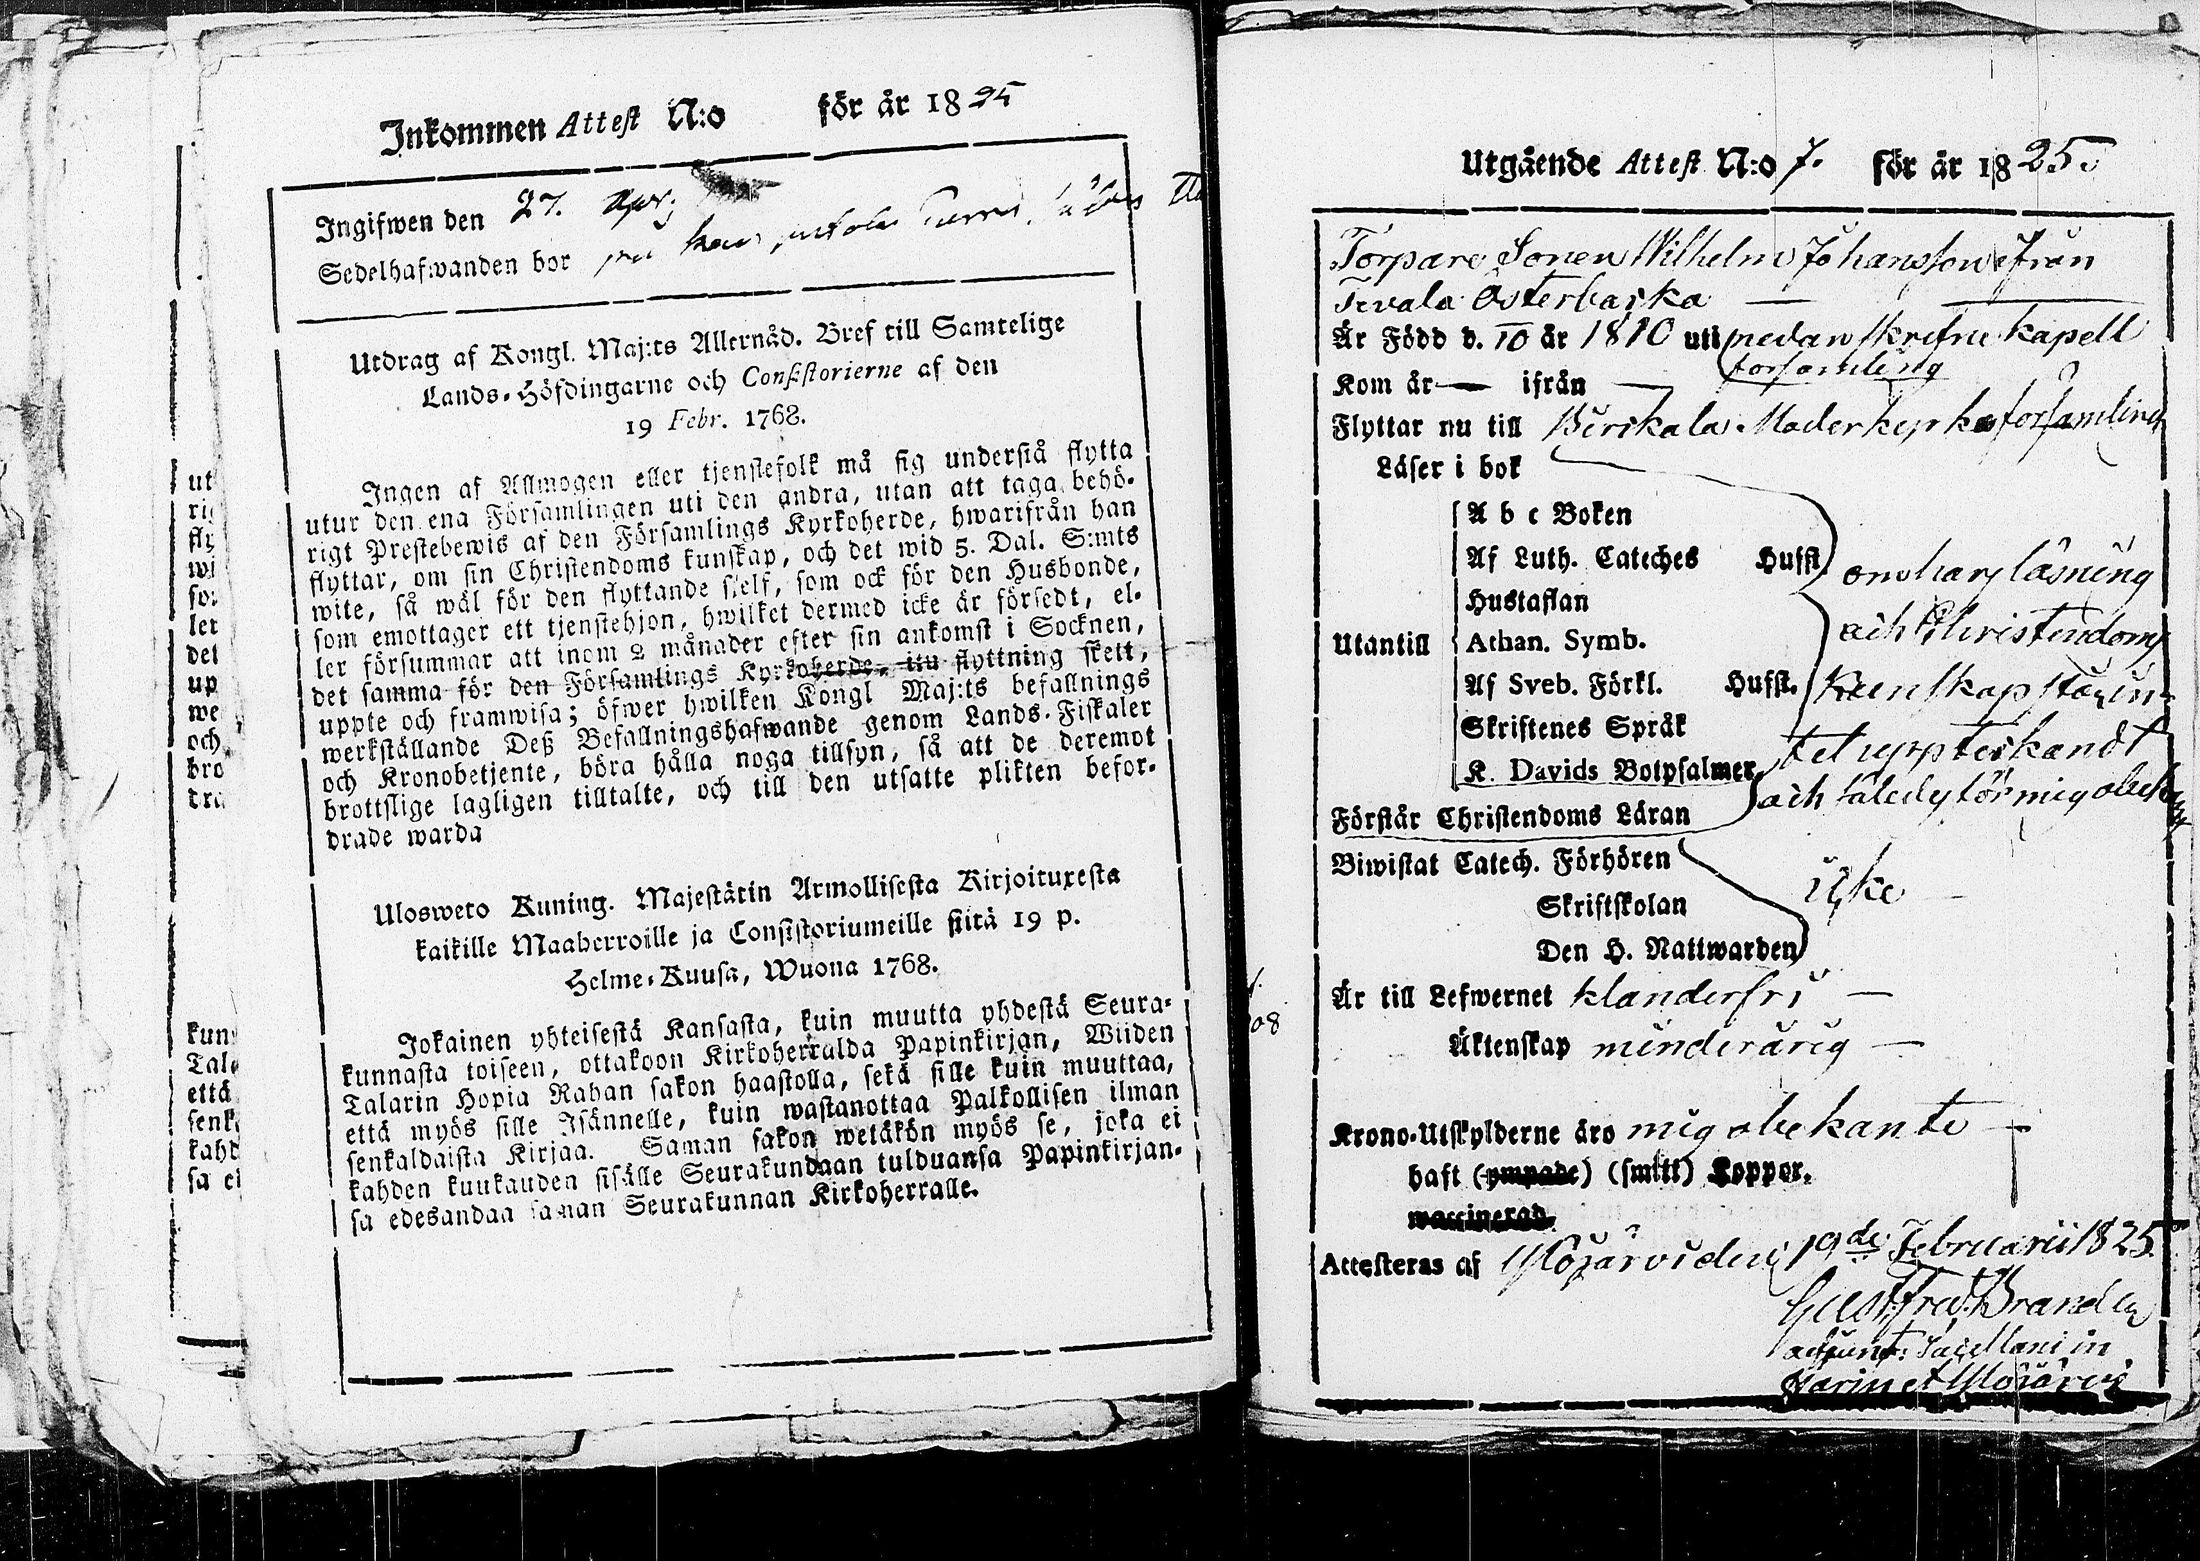 Inkommen Attest N:o för år 1825
Ingifwen den 27. Apr.
Sedelhafwanden bor
Utdrag af Kongl. Maj:ts Allernåd. Bref till Samtelige
Lands-Höfdingarne och Consistorierne af den
19 Febr. 1768.
Ingen af Allmogen eller tjenstefolk må sig understå flytta
utur den ena Församlingen uti den andra, utan att taga behö-
rigt Prestebewis af den Församlings Kyrkoherde, hwarifrån han
flyttar, om sin Christendoms kunskap, och det wid 5. Dal. S:mts
wite, så wäl för den flyttande sjelf, som ock för den Husbonde,
som emottager ett tjenstehjon, hwilket dermed icke är försedt, el-
ler försummar att inom 2 månader efter sin ankomst i Socknen,
det samma för den Församlings Kyrkoherde, itu flyttning skett,
uppte och framwisa; öfwer hwilken Kongl Maj:ts befallnings
werkställande Deß Befallningshafwande genom Lands-Fiskaler
och Kronobetjente, böra hålla noga tillsyn, så att de deremot
brottslige lagligen tilltalte, och till den utsatte plikten befor-
drade warda
Ulosweto Kuning. Majestätin Armollisesta Kirjoituxesta
kaikille Maaherroille ja Consistoriumeille siitä 19 p.
Helme-Kuusa, Wuona 1768.
Jokainen yhteisestä Kansasta, kuin muutta yhdestä Seura-
kunnasta toiseen, ottakoon Kirkoherralda Papinkirjan, Wiiden
Talarin Hopia Rahan sakon haastolla, sekä sille kuin muuttaa,
että myös sille Isännelle, kuin wastanottaa Palkollisen ilman
senkaldaista Kirjaa. Saman sakon wetäkön myös se, joka ei
kahden kuukauden sisälle Seurakundaan tulduansa Papinkirjan-
sa edesandaa saman Seurakunnan Kirkoherralle.
ut
fly
wi
let
det
up
we
och
bro
dra
kun
Tala
että
senk
kahd
sa ei
08
Utgående Attest N:o 7. för år 1825.
Torpare Sonen Wilhelm Johansson ifrån
Tevala Österbacka
Är Född d. 10 år 1810 uti nedanskrefne kapell
församling
Kom år — ifrån —
Flyttar nu till Birkala Moderkyrkoförsamling
Läser i bok
A b c Boken
Af Luth. Cateches Husst
Hustaflan
Utantill Athan. Symb.
Af Sveb. Förkl. Husst.
Skriftenes Språk
K. Davids Botpsalmer
Förstår Christendoms Läran
hans läsning
och Christendoms
kunskap står in-
tet uppteknadt
och således för mig obekant
Biwistat Catech. Förhören
Skriftskolan
Den H. Nattwarden
icke
Är till Lefwernet klanderfri —
Äktenskap minderårig —
Krono-Utskylderne äro mig obekante —
haft (ympade) (smitt) Koppor.
waccinerad.
Attesteras af Ylöjärvi den 19de Februarii 1825.
Gust. Fred. Brander
adjunct. Sacellani in
et Ylöjärvi